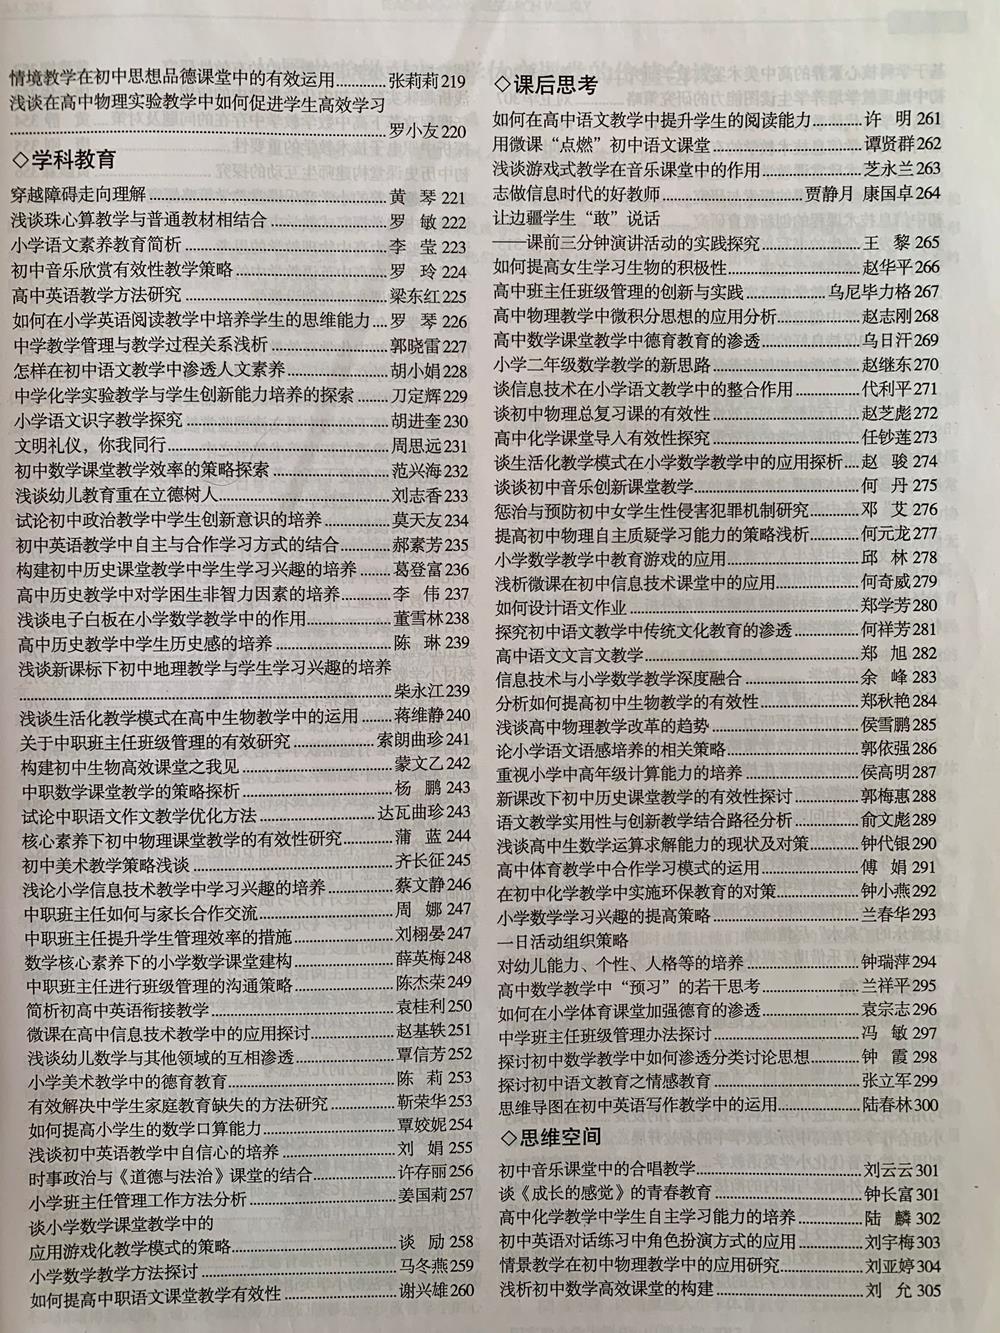 情境教学在初中思想品德课堂中的有效运用............张莉莉219
浅谈在高中物理实验教学中如何促进学生高效学习
............罗小友220
◇学科教育
穿越障碍走向理解............黄 琴 221
浅谈珠心算教学与普通教材相结合............罗 敏 222
小学语文素养教育简析............李 莹 223
初中音乐欣赏有效性教学策略............罗 玲 224
高中英语教学方法研究............梁东红225
如何在小学英语阅读教学中培养学生的思维能力....罗 琴 226
中学教学管理与教学过程关系浅析............郭晓雷227
怎样在初中语文教学中渗透人文素养............胡小娟228
中学化学实验教学与学生创新能力培养的探索......刀定辉229
小学语文识字教学探究............胡进奎230
文明礼仪，你我同行............周思远231
初中数学课堂教学效率的策略探索............范兴海232
浅谈幼儿教育重在立德树人............刘志香233
试论初中政治教学中学生创新意识的培养............莫天友234
初中英语教学中自主与合作学习方式的结合............郝素芳235
构建初中历史课堂教学中学生学习兴趣的培养......葛登富236
高中历史教学中对学困生非智力因素的培养............李 伟 237
浅谈电子白板在小学数学教学中的作用............董雪林238
高中历史教学中学生历史感的培养............陈 琳 239
浅谈新课标下初中地理教学与学生学习兴趣的培养
............柴永江239
浅谈生活化教学模式在高中生物教学中的运用......蒋维静240
关于中职班主任班级管理的有效研究............索朗曲珍241
构建初中生物高效课堂之我见............蒙文乙242
中职数学课堂教学的策略探析............杨 鹏 243
试论中职语文作文教学优化方法............达瓦曲珍243
核心素养下初中物理课堂教学的有效性研究............蒲 蓝 244
初中美术教学策略浅谈............齐长征245
浅论小学信息技术教学中学习兴趣的培养............蔡文静246
中职班主任如何与家长合作交流............周 娜 247
中职班主任提升学生管理效率的措施............刘栩晏247
数学核心素养下的小学数学课堂建构............薛英梅248
中职班主任进行班级管理的沟通策略............陈杰荣249
简析初高中英语衔接教学............袁桂利250
微课在高中信息技术教学中的应用探讨............赵基轶251
浅谈幼儿数学与其他领域的互相渗透............覃信芳252
小学美术教学中的德育教育............陈 莉 253
有效解决中学生家庭教育缺失的方法研究............靳荣华253
如何提高小学生的数学口算能力............覃姣妮254
浅谈初中英语教学中自信心的培养............刘 娟 255
时事政治与《道德与法治》课堂的结合............许存丽256
小学班主任管理工作方法分析............姜国莉257
谈小学数学课堂教学中的
应用游戏化教学模式的策略............谈 励 258
小学数学教学方法探讨............马冬燕259
如何提高中职语文课堂教学有效性............谢兴雄260
◇课后思考
如何在高中语文教学中提升学生的阅读能力............许 明 261
用微课“点燃”初中语文课堂............谭贤群262
浅谈游戏式教学在音乐课堂中的作用............芝永兰263
志做信息时代的好教师............贾静月 康国卓264
让边疆学生“敢”说话
——课前三分钟演讲活动的实践探究............王 黎 265
如何提高女生学习生物的积极性............赵华平266
高中班主任班级管理的创新与实践............乌尼毕力格267
高中物理教学中微积分思想的应用分析............赵志刚268
高中数学课堂教学中德育教育的渗透............乌日汗269
小学二年级数学教学的新思路............赵继东270
谈信息技术在小学语文教学中的整合作用............代利平271
谈初中物理总复习课的有效性............赵芝彪272
高中化学课堂导人有效性探究............任钞莲273
谈生活化教学模式在小学数学教学中的应用探析....赵 骏 274
谈谈初中音乐创新课堂教学............何 丹 275
惩治与预防初中女学生性侵害犯罪机制研究............邓 艾 276
提高初中物理自主质疑学习能力的策略浅析............何元龙277
小学数学教学中教育游戏的应用............邱 林 278
浅析微课在初中信息技术课堂中的应用............何奇威279
如何设计语文作业............郑学芳280
探究初中语文教学中传统文化教育的渗透............何祥芳281
高中语文文言文教学............郑 旭 282
信息技术与小学数学教学深度融合............余 峰 283
分析如何提高初中生物教学的有效性............郑秋艳284
浅谈高中物理教学改革的趋势............侯雪鹏285
论小学语文语感培养的相关策略............郭依强286
重视小学中高年级计算能力的培养............侯高明287
新课改下初中历史课堂教学的有效性探讨............郭梅惠288
语文教学实用性与创新教学结合路径分析............俞文彪289
浅谈高中生数学运算求解能力的现状及对策............钟代银290
高中体育教学中合作学习模式的运用............傅 娟 291
在初中化学教学中实施环保教育的对策............钟小燕292
小学数学学习兴趣的提高策略............兰春华293
一日活动组织策略
对幼儿能力、个性、人格等的培养............钟瑞萍294
高中数学教学中“预习”的若干思考............兰祥平295
如何在小学体育课堂加强德育的渗透............袁宗志296
中学班主任班级管理办法探讨............冯 敏 297
探讨初中数学教学中如何渗透分类讨论思想............钟 霞 298
探讨初中语文教育之情感教育............张立军299
思维导图在初中英语写作教学中的运用............陆春林300
◇思维空间
初中音乐课堂中的合唱教学............刘云云301
谈《成长的感觉》的青春教育............钟长富301
高中化学教学中学生自主学习能力的培养............陆 麟 302
初中英语对话练习中角色扮演方式的应用............刘宇梅303
情景教学在初中物理教学中的应用研究............刘亚婷304
浅析初中数学高效课堂的构建............刘 允 305